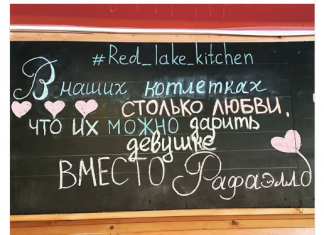 #Red_lake_kitchen
В наших котлетках
СТОЛЬКО ЛЮБВИ,
ЧТО ИХ МОЖНО дарить
девушке
ВМЕСТО Рафаэлло